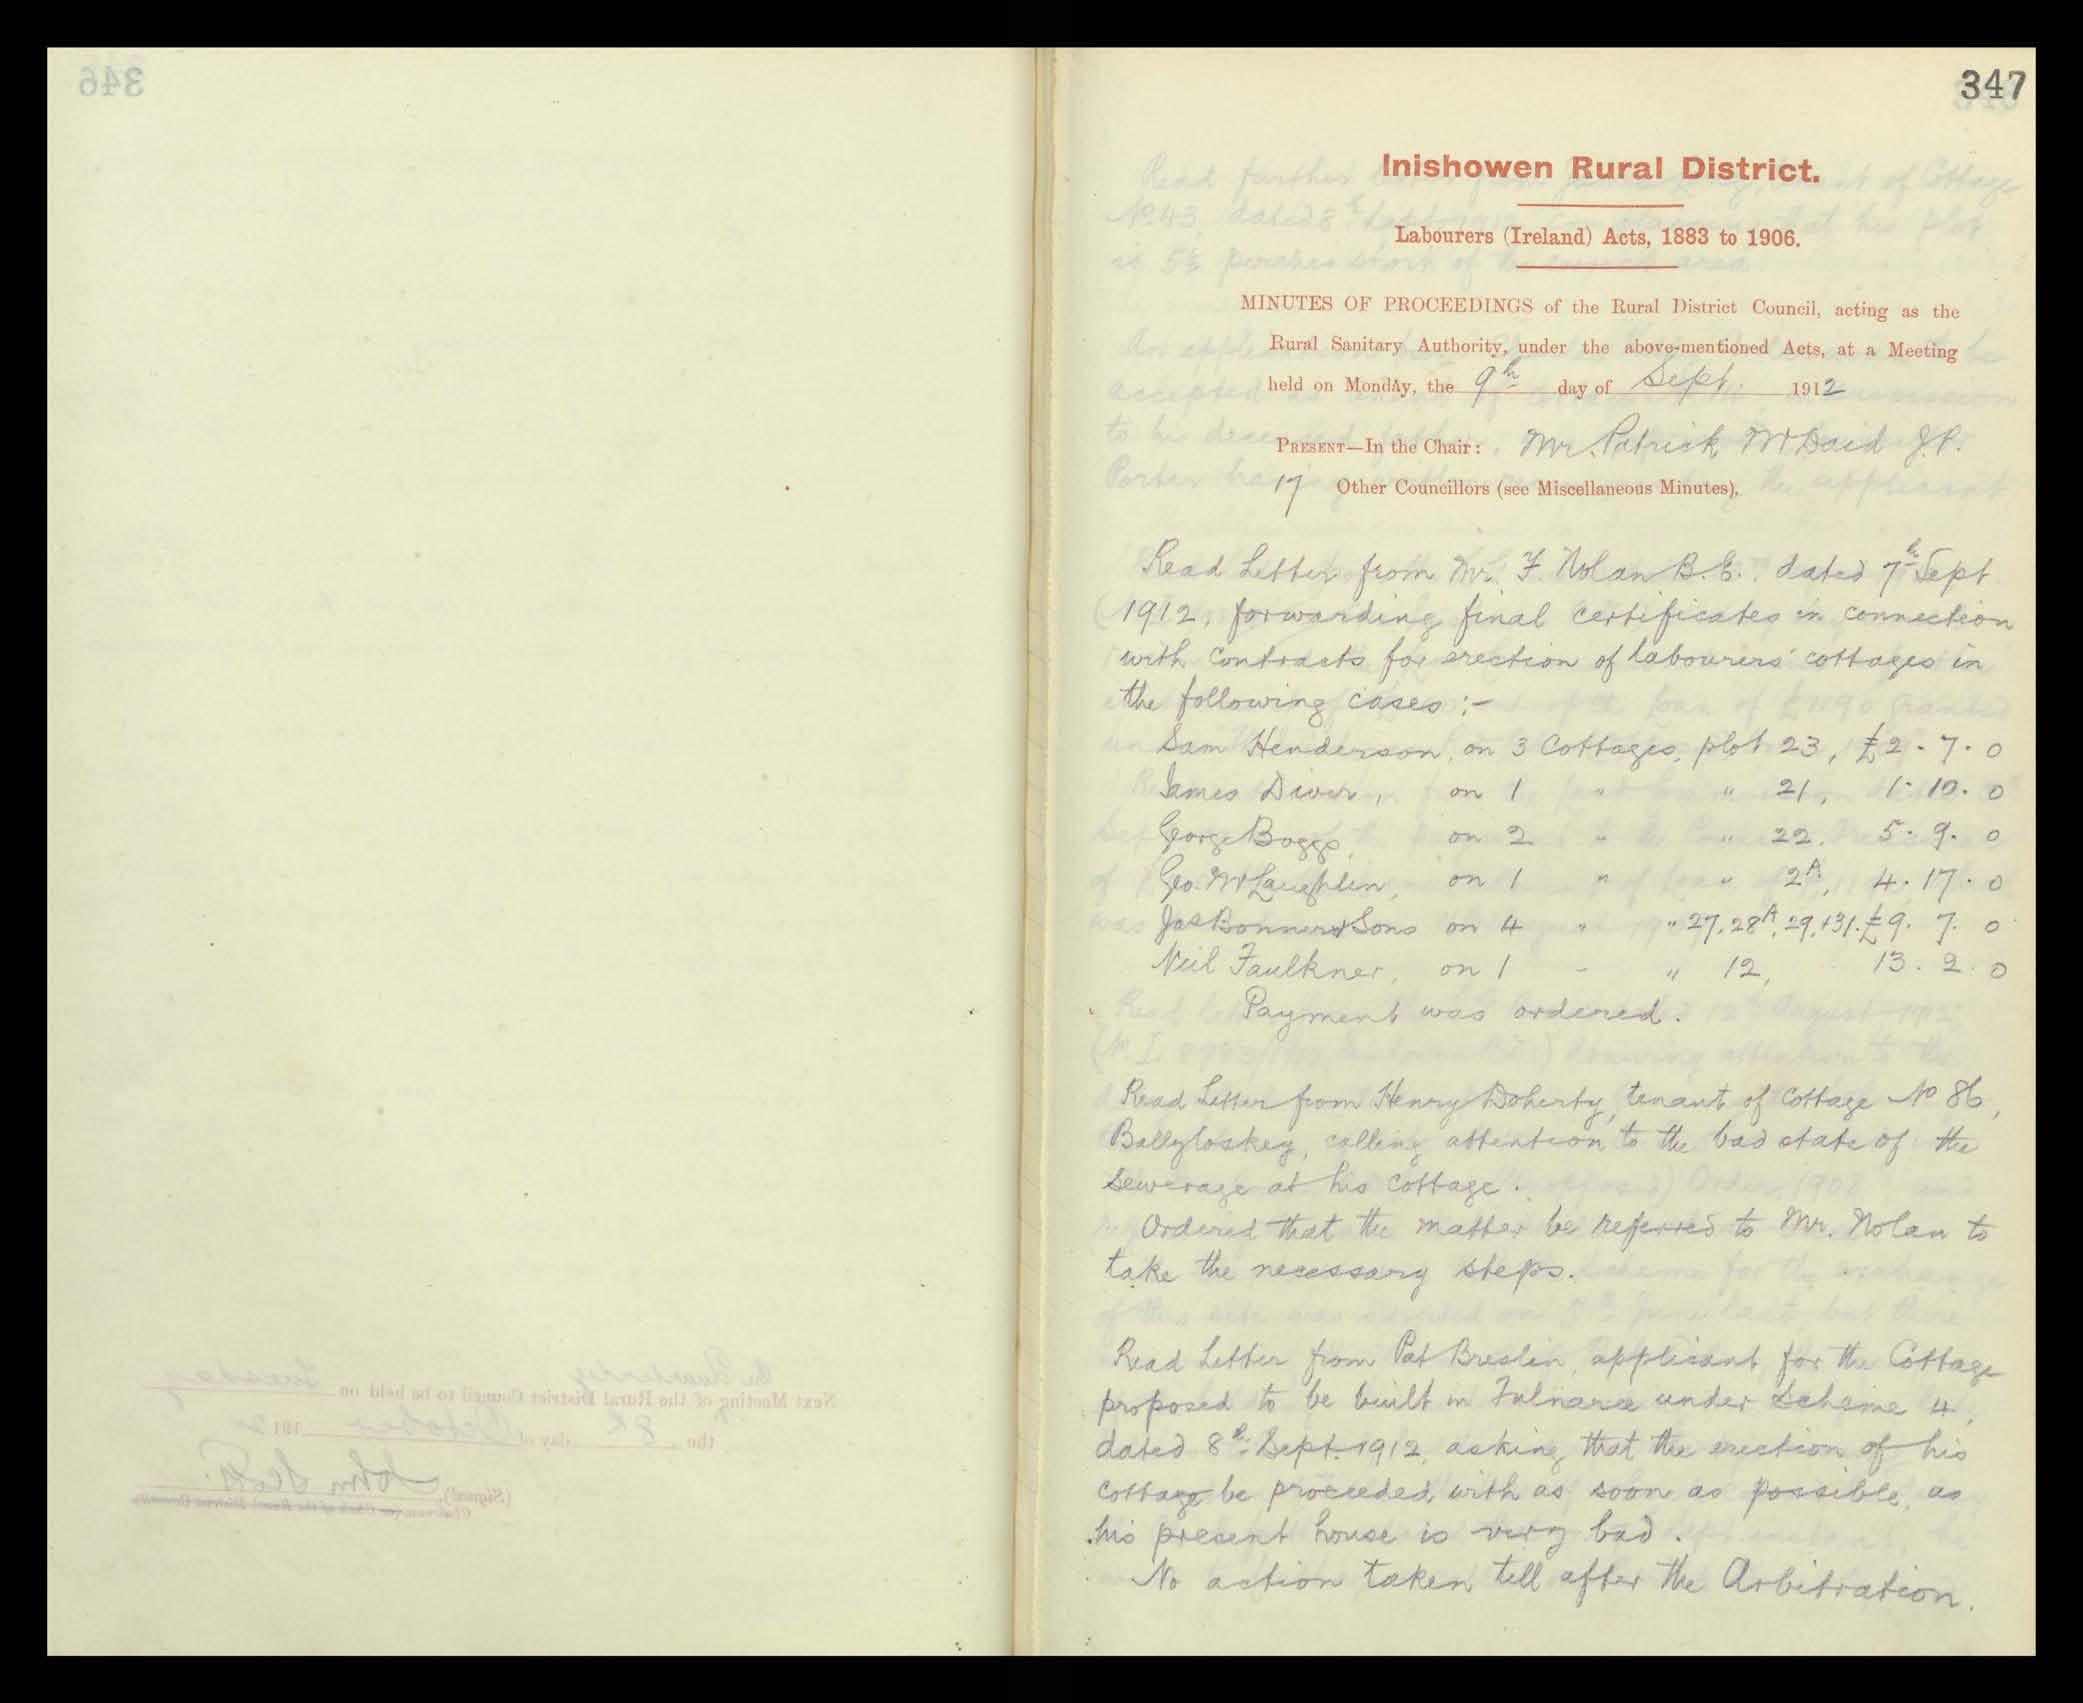 347
Inishowen Rural District.
Labourers (Ireland) Acts, 1883 to 1906.
MINUTES OF PROCEEDINGS of the Rural District Council, acting as the
Rural Sanitary Authority, under the above-mentioned Acts, at a Meeting
held on Monday, the 9th day of Sept. 1912
PRESENT—In the Chair: Mr. Patrick McDaid J.P.
17 Other Councillors (see Miscellaneous Minutes).
Read Letter from Mr. F. Nolan B.E. dated 7th Sept
1912, forwarding final certificates in connection
with contracts for erection of labourers' cottages in
the following cases :-
Sam Henderson, on 3 Cottages, plot 23, £2 - 7 - 0
James Diver, on 1 " " 21, 1 - 10 - 0
George Boggs, on 2 " " 22, 5 - 9 - 0
Geo. McLaughlin, on 1 " " 2A, 4 - 17 - 0
Jas Bonner & Sons on 4 " " 27, 28A, 29, +31. £9. 7. 0
Neil Faulkner, on 1 - " 12, 13. 2. 0
Payment was ordered.
Read Letter from Henry Doherty, tenant of Cottage No 86,
Ballyloskey, calling attention to the bad state of the
Sewerage at his Cottage.
Ordered that the matter be referred to Mr. Nolan to
take the necessary steps.
Read Letter from Pat Breslin, applicant for the Cottage
proposed to be built in Tulnaree under Scheme 4,
dated 8th Sept. 1912, asking that the erection of his
Cottage be proceeded with as soon as possible, as
his present house is very bad.
No action taken till after the Arbitration.